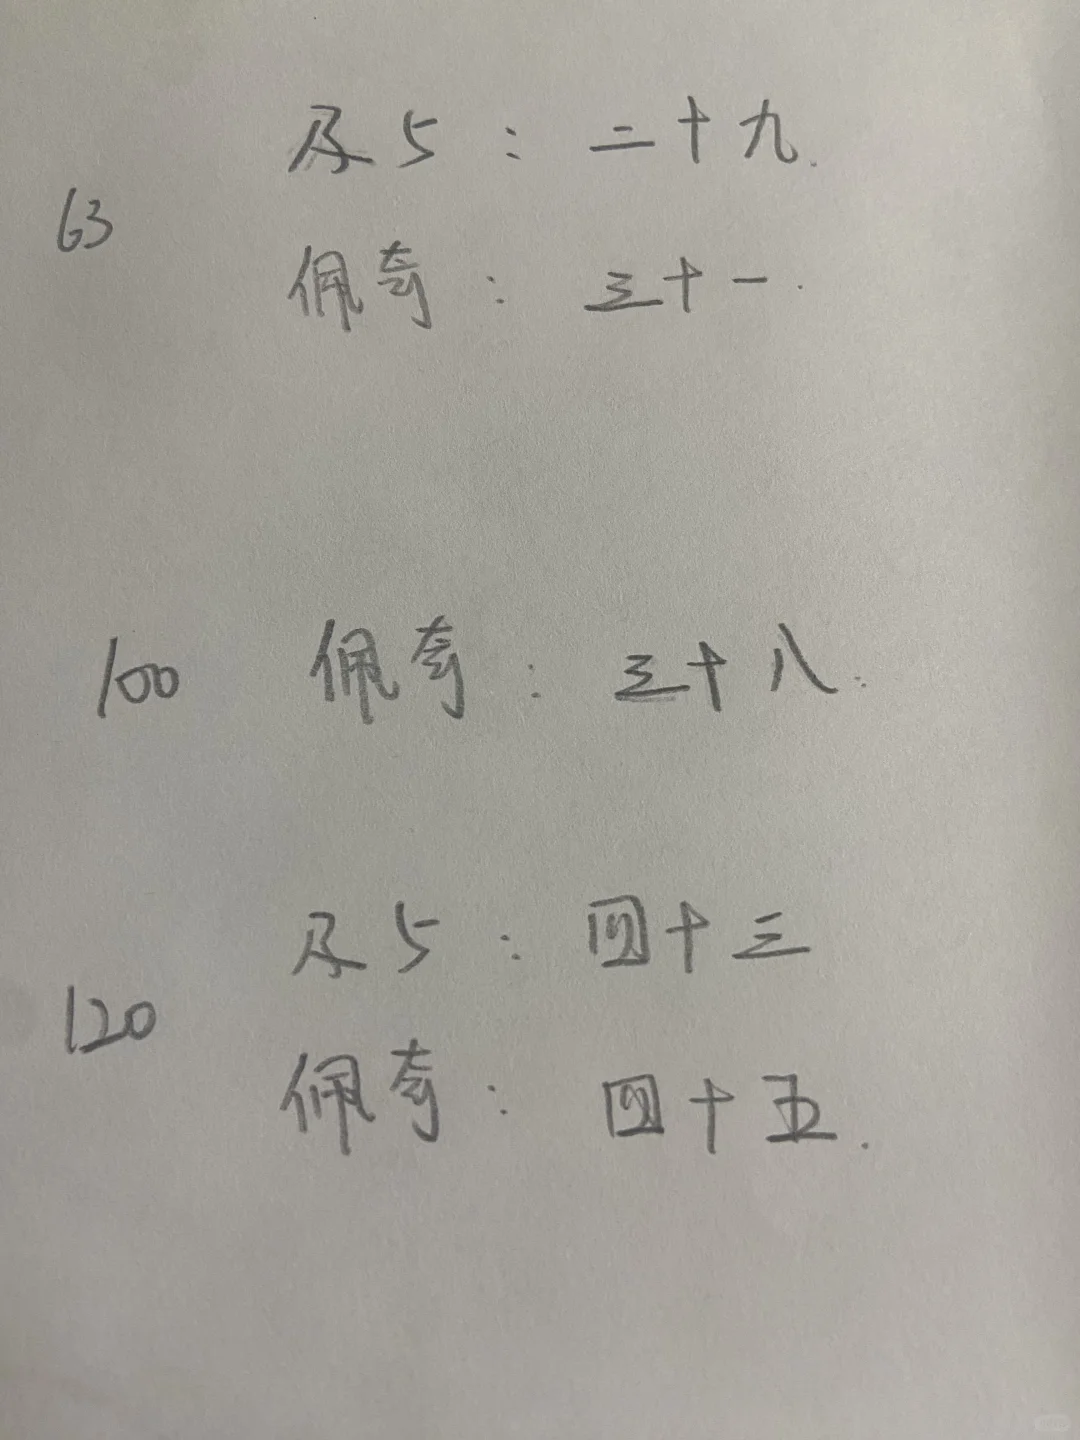 及5：二十九.
63
佩奇：三十一.
100 佩奇：三十八.
及5：四十三
120
佩奇：四十五.